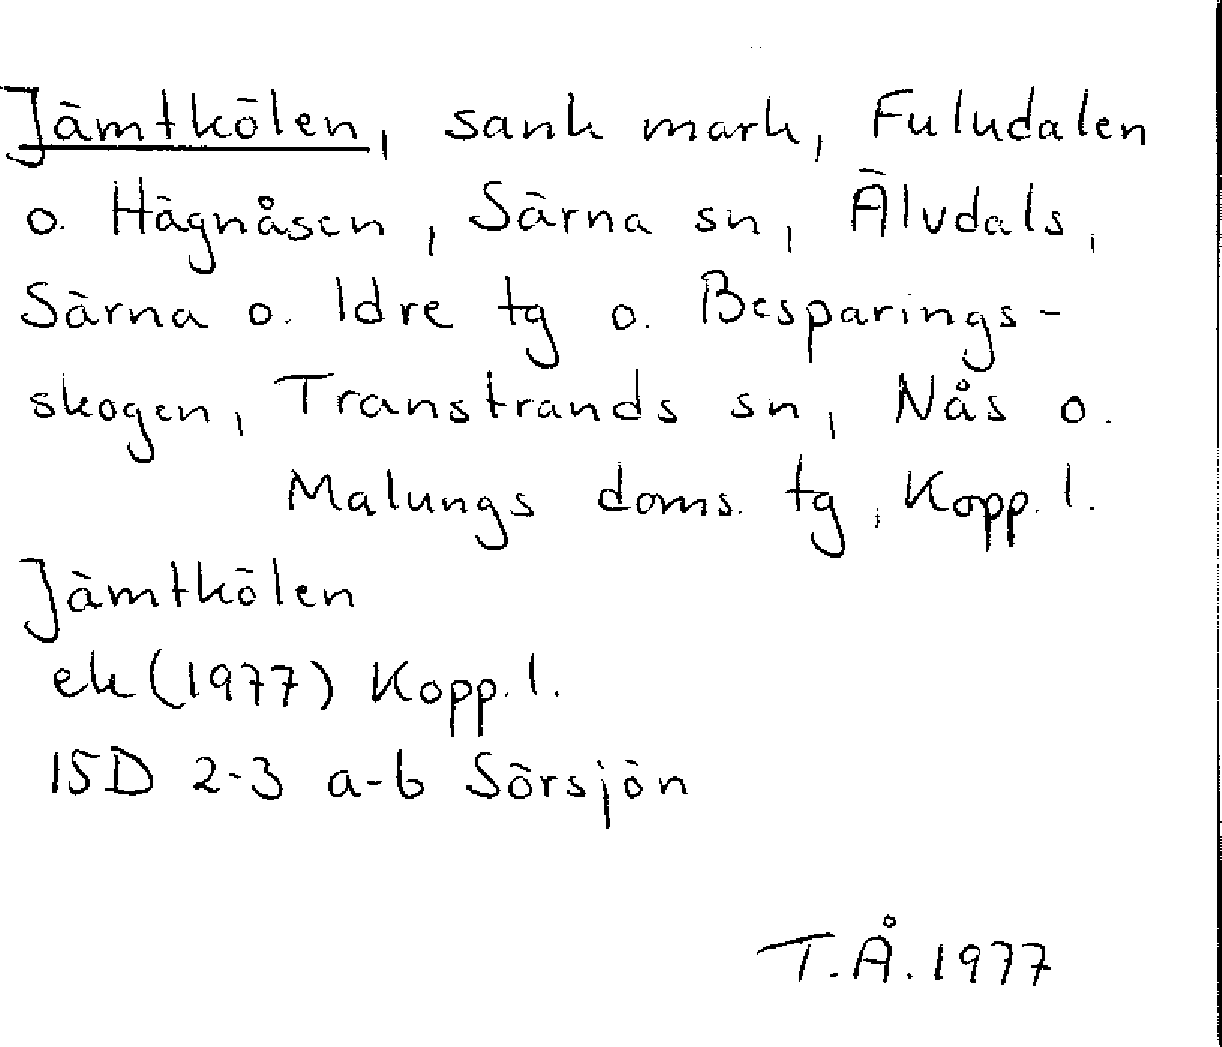 Jämtkölen, sank mark, Fuludalen
o. Hägnåsen, Särna sn, Älvdals,
Särna o. Idre tg o. Besparings-
skogen, Transtrands sn, Nås o.
Malungs doms. tg, Kopp. l.
Jämtkölen
ek (1977) Kopp. l.
15D 2-3 a-b Sörsjön
T.Å. 1977